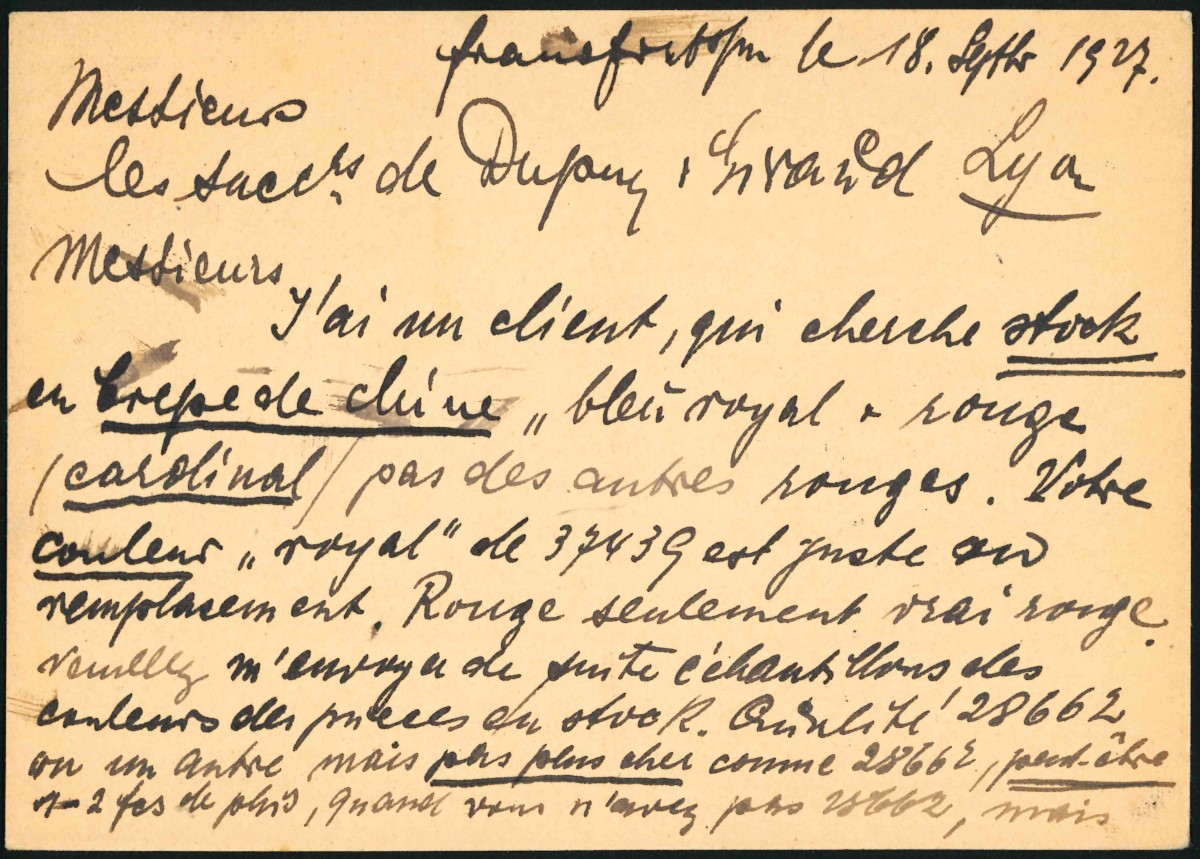 Francfort s/m le 18. Septbr 1927.
Messieurs
les succrs de Dupuy & Giraud Lyon
Messieurs
J'ai un client, qui cherche stock
en crepe de chine „bleu royal & rouge
(cardinal) pas des autres rouges. Votre
couleur „royal" de 37439 est juste ou
remplasement. Rouge seulement vrai rouge.
Veuillez m'envoyer de suite échantillons des
couleurs des pièces en stock. Qualité 28662
ou un autre mais pas plus cher comme 28662, peut-être
1-2 fcs de plus, quand vous n'avez pas 28662, mais